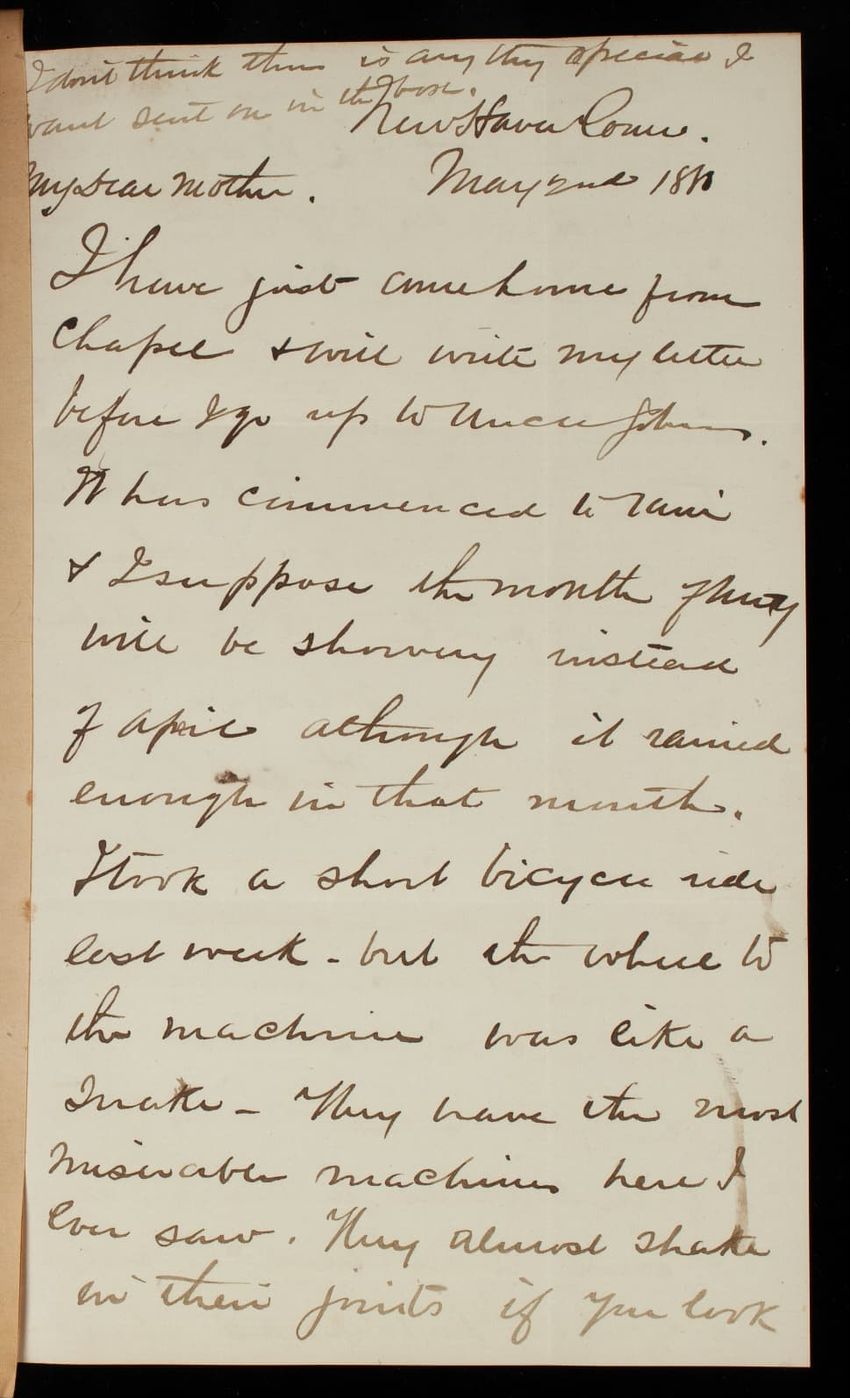 I don't think there is any thing special I
want sent on in the box.
New Haven Conn.
My Dear Mother. May 2nd 18
I have just come home from
Chapel & will write my letter
before I go up to Uncle Johns.
It has commenced to rain
& I suppose the month of May
will be showery instead
of April although it rained
enough in that month.
I took a short bicycle ride
last week - but the wheel to
the machine was like a
Snake - They have the most
miserable machines here I
ever saw. They almost shake
in their joints if you look